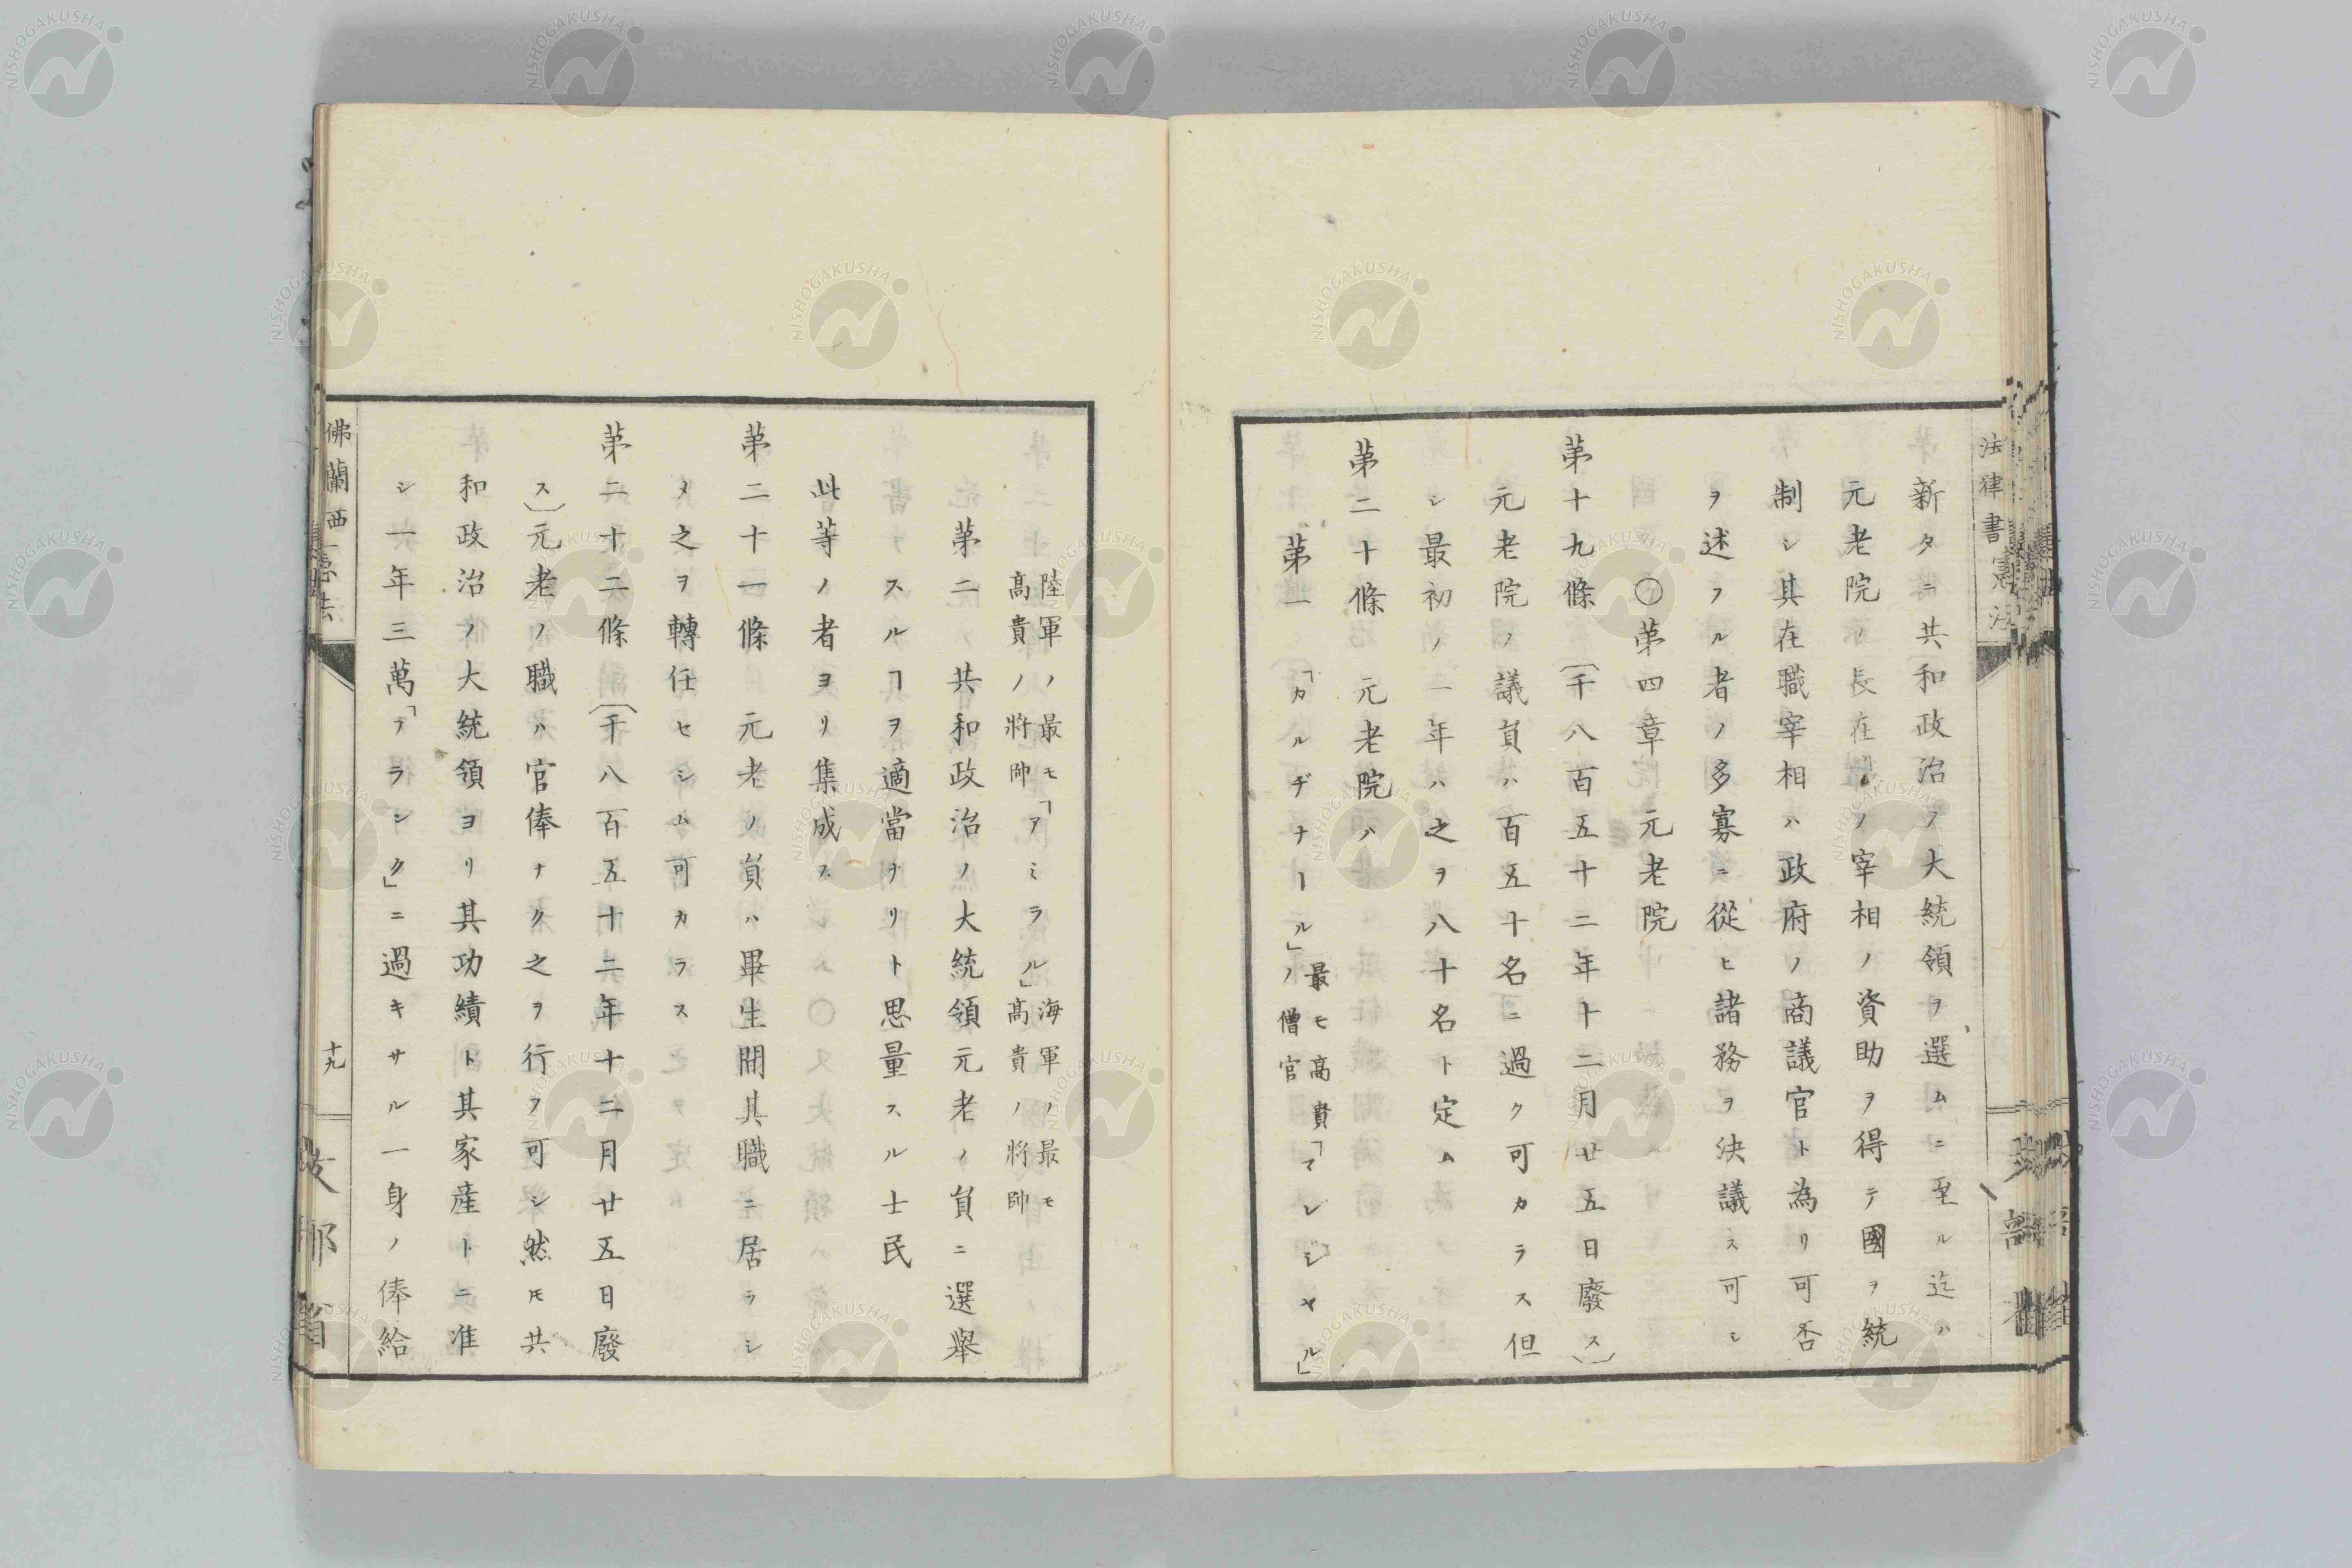 法律書憲法
新タニ共和政治ノ大統領ヲ選ムニ至ル迄ハ
元老院ノ長在職ノ宰相ノ資助ヲ得テ國ヲ統
制シ其在職宰相ハ政府ノ商議官ト為リ可否
ヲ述フル者ノ多寡ニ從ヒ諸務ヲ決議ス可シ
○第四章 元老院
第十九條〔千八百五十二年十二月廿五日廢ス〕
元老院ノ議員ハ百五十名ニ過ク可カラス但
シ最初ノ一年ハ之ヲ八十名ト定ム
第二十條 元老院ハ
第一 「カルヂナール」ノ僧官 最モ高貴「マレシヤル」
陸軍ノ最モ高貴ノ將帥「アミラル」海軍ノ最モ高貴ノ將帥
第二 共和政治ノ大統領元老ノ員ニ選舉
スルヿヲ適當ナリト思量スル士民
此等ノ者ヨリ集成ス
第二十一條 元老ノ員ハ畢生間其職ニ居ラシ
メ之ヲ轉任セシム可カラス
第二十二條〔千八百五十二年十二月廿五日廢
ス〕元老ノ職ハ官俸ナク之ヲ行フ可シ然𪜈共
和政治ノ大統領ヨリ其功績ト其家產トニ准
シ一年三萬「フランク」ニ過キサル一身ノ俸給
佛蘭西憲法
十九
NISHOGAKUSHA